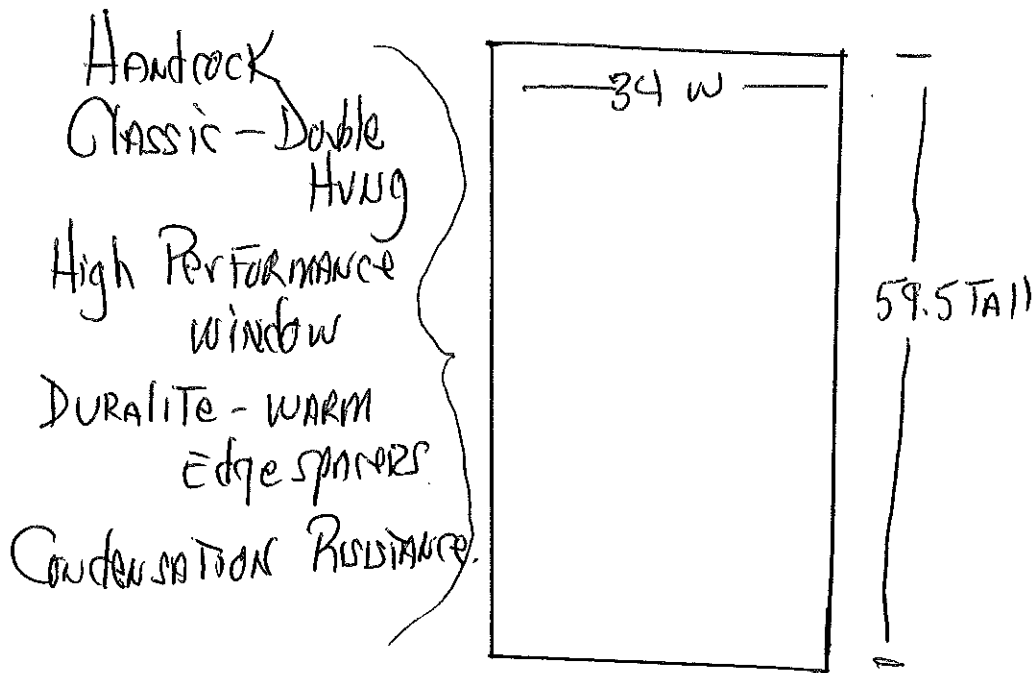 HANdcock
Classic - Double
Hung
High PerFORMANCE
window
DURAliTe - WARM
Edge spacers.
CONdenSATION Resistance.
34 W
59.5 TAll